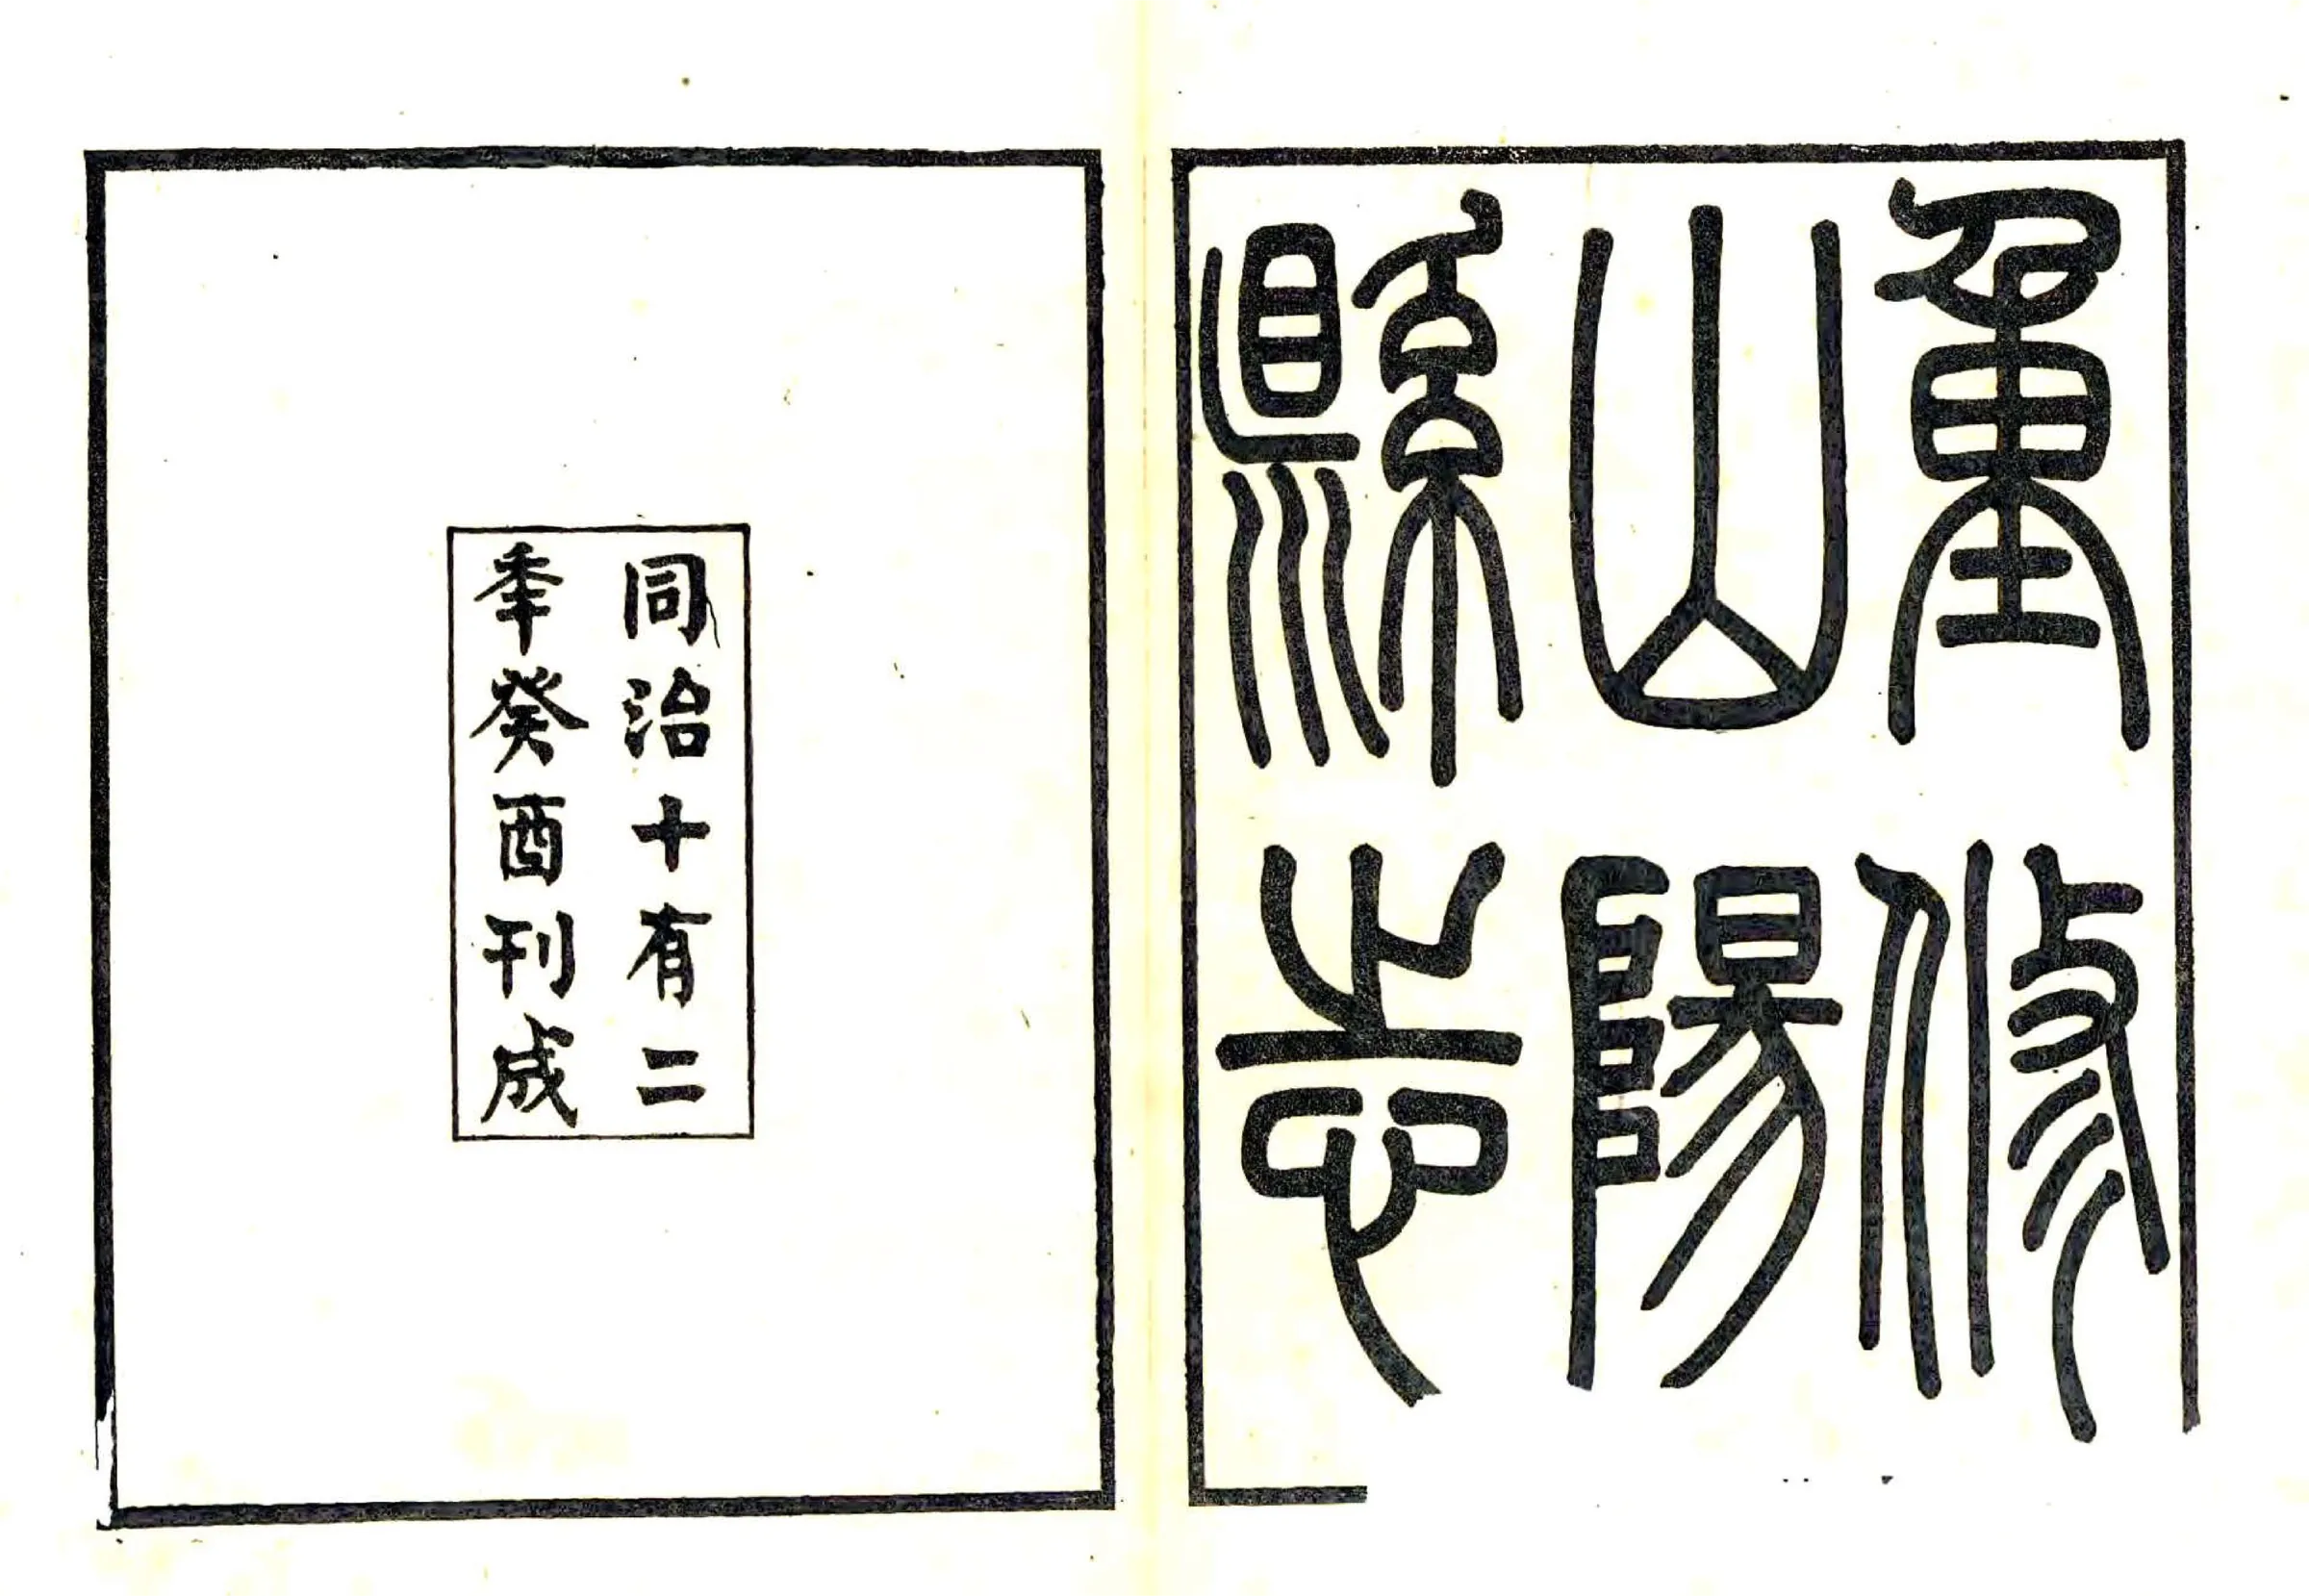 重修
山陽
縣志
同治十有二
秊癸酉刊成